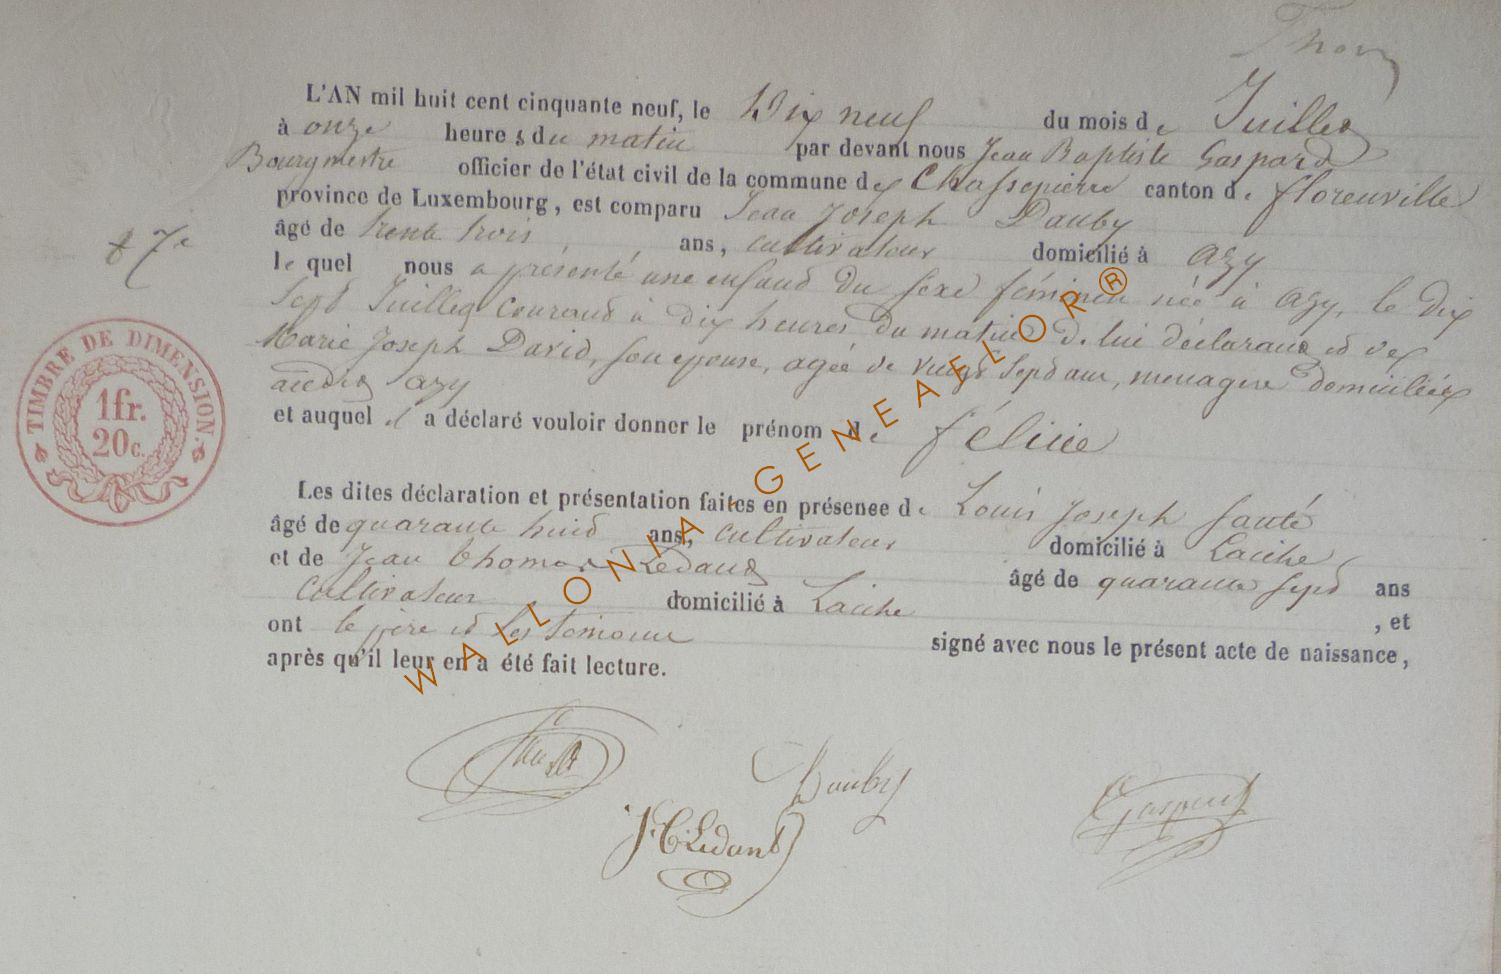 L'AN mil huit cent cinquante neuf, le Dix neuf du mois de Juillet
à onze heures du matin par devant nous Jean Baptiste Gaspard
Bourgmestre officier de l'état civil de la commune de Chassepierre canton de florenville
province de Luxembourg, est comparu Jean Joseph Dauby
âgé de trente trois ans, cultivateur domicilié à azy
le quel nous a présenté une enfant du sexe féminin née à azy, le dix
Sept Juillet courant à dix heures du matin de lui déclarant et de
Marie Joseph David, son epouse, agée de vingt Sept ans, menagère domiciliée
audit azy
et auquel il a déclaré vouloir donner le prénom de félicie
Les dites déclaration et présentation faites en présence de Louis Joseph
âgé de quarante huit ans, cultivateur domicilié à Laiche
et de Jean thomas Ledant âgé de quarante sept ans
cultivateur domicilié à Laiche , et
ont le père et les temoins signé avec nous le présent acte de naissance,
après qu'il leur en a été fait lecture.
TIMBRE DE DIMENSION.
1fr.
20c.
Dauby
J T Ledant
Gaspard
WALLONIA - GENEAFLOR®